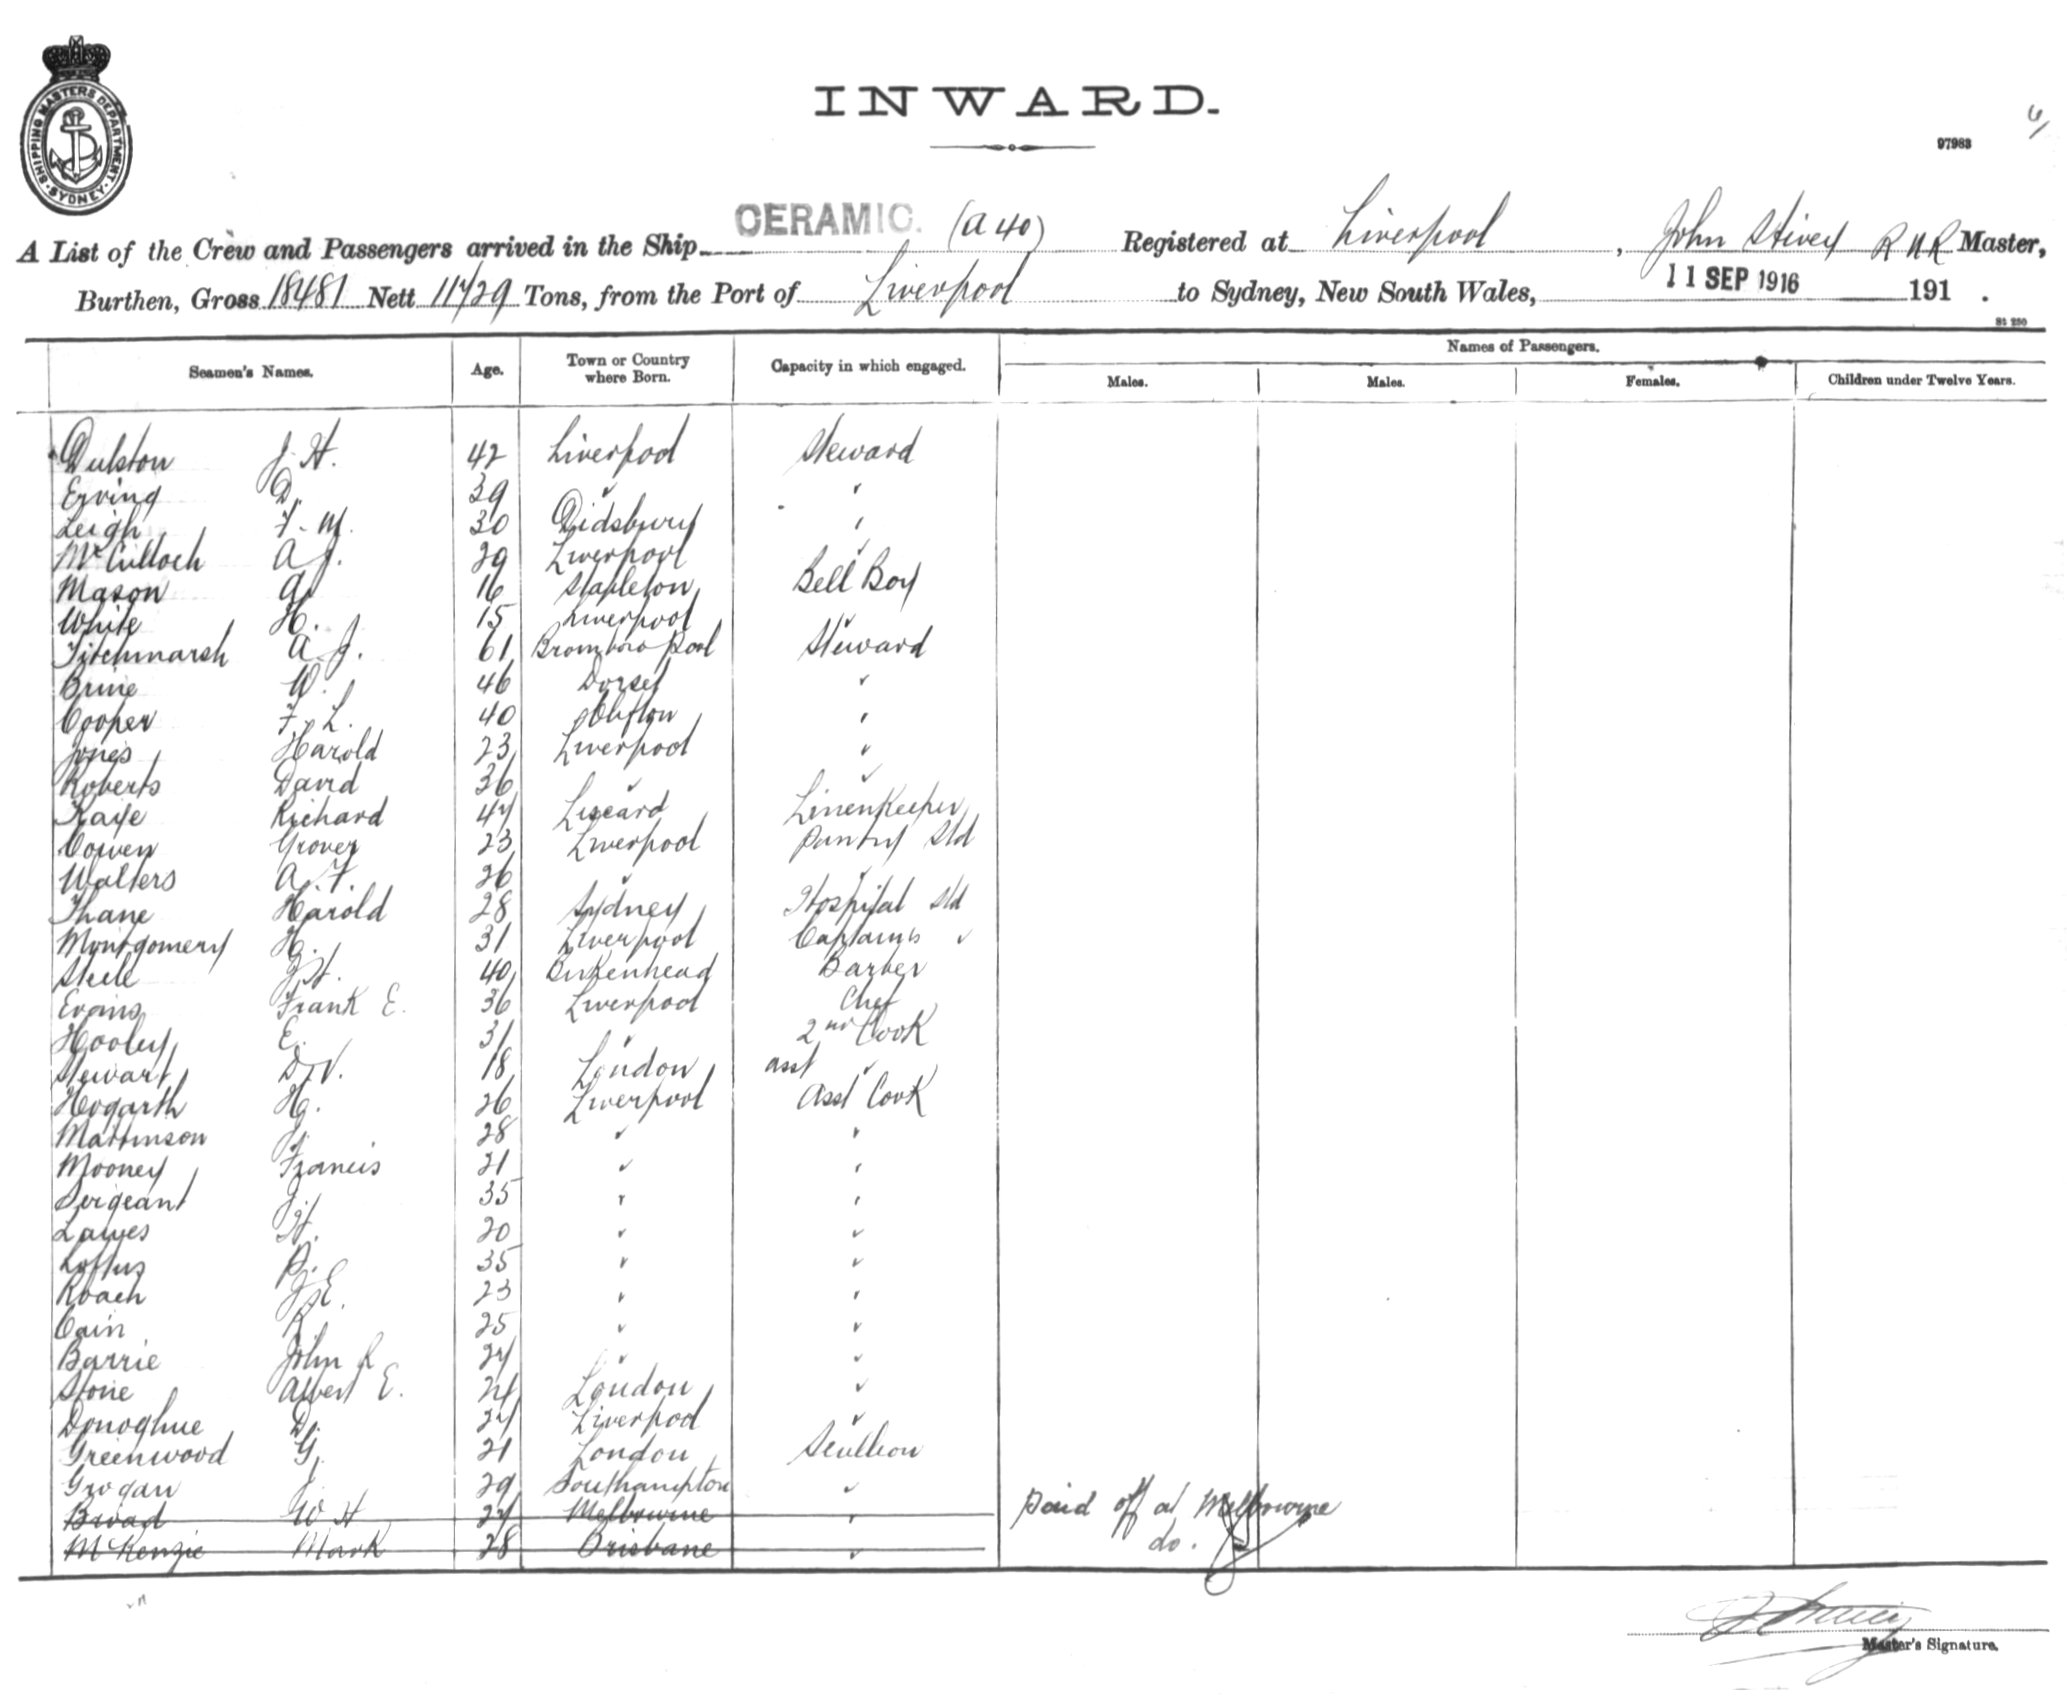 SHIPPING MASTERS DEPARTMENT · SYDNEY ·
INWARD.
97983
A List of the Crew and Passengers arrived in the Ship CERAMIC. (A 40) Registered at Liverpool, John Stivey R N R Master,
Burthen, Gross 18481 Nett 11729 Tons, from the Port of Liverpool to Sydney, New South Wales, 11 SEP 1916 191 .
Seamen's Names. Age. Town or Country where Born. Capacity in which engaged. Names of Passengers.
Males. Males. Females. Children under Twelve Years.
Dulston J. H. 42 Liverpool Steward
Erving D. 39 " "
Leigh F. M. 30 Didsbury "
McCulloch A J. 29 Liverpool "
Mason 16 Stapleton Bell Boy
White H. 15 Liverpool "
Titchmarsh A. J. 61 Bromboro Pool Steward
Brine W. 46 Dorset "
Cooper F. L. 40 Clifton "
Jones Harold 23 Liverpool "
Roberts David 36 " "
Kaye Richard 47 Liscard Linenkeeper
Cowen Grover 23 Liverpool Pantry Std
Walters A. F. 26 " "
Thane Harold 28 Sydney Hospital Std
Montgomery H. 31 Liverpool Captains "
Steele J. H. 40 Birkenhead Barber
Evans Frank E. 36 Liverpool Chef
Hooley E. 31 " 2nd Cook
Stewart D. V. 18 London asst "
Hogarth H. 26 Liverpool Asst Cook
Mattinson J. 28 " "
Mooney Francis 21 " "
Sergeant J. 35 " "
Lawes H. 20 " "
Loftus P. 35 " "
Roach J. E. 23 " "
Cain R. 25 " "
Barrie John R 27 " "
Stone Albert E. 24 London "
Donoghue D. 27 Liverpool "
Greenwood G. 21 London Scullion
Grogan J. 29 Southampton "
Broad W H 27 Melbourne " Paid off at Melbourne
McKenzie Mark 28 Brisbane " do.
Master's Signature.